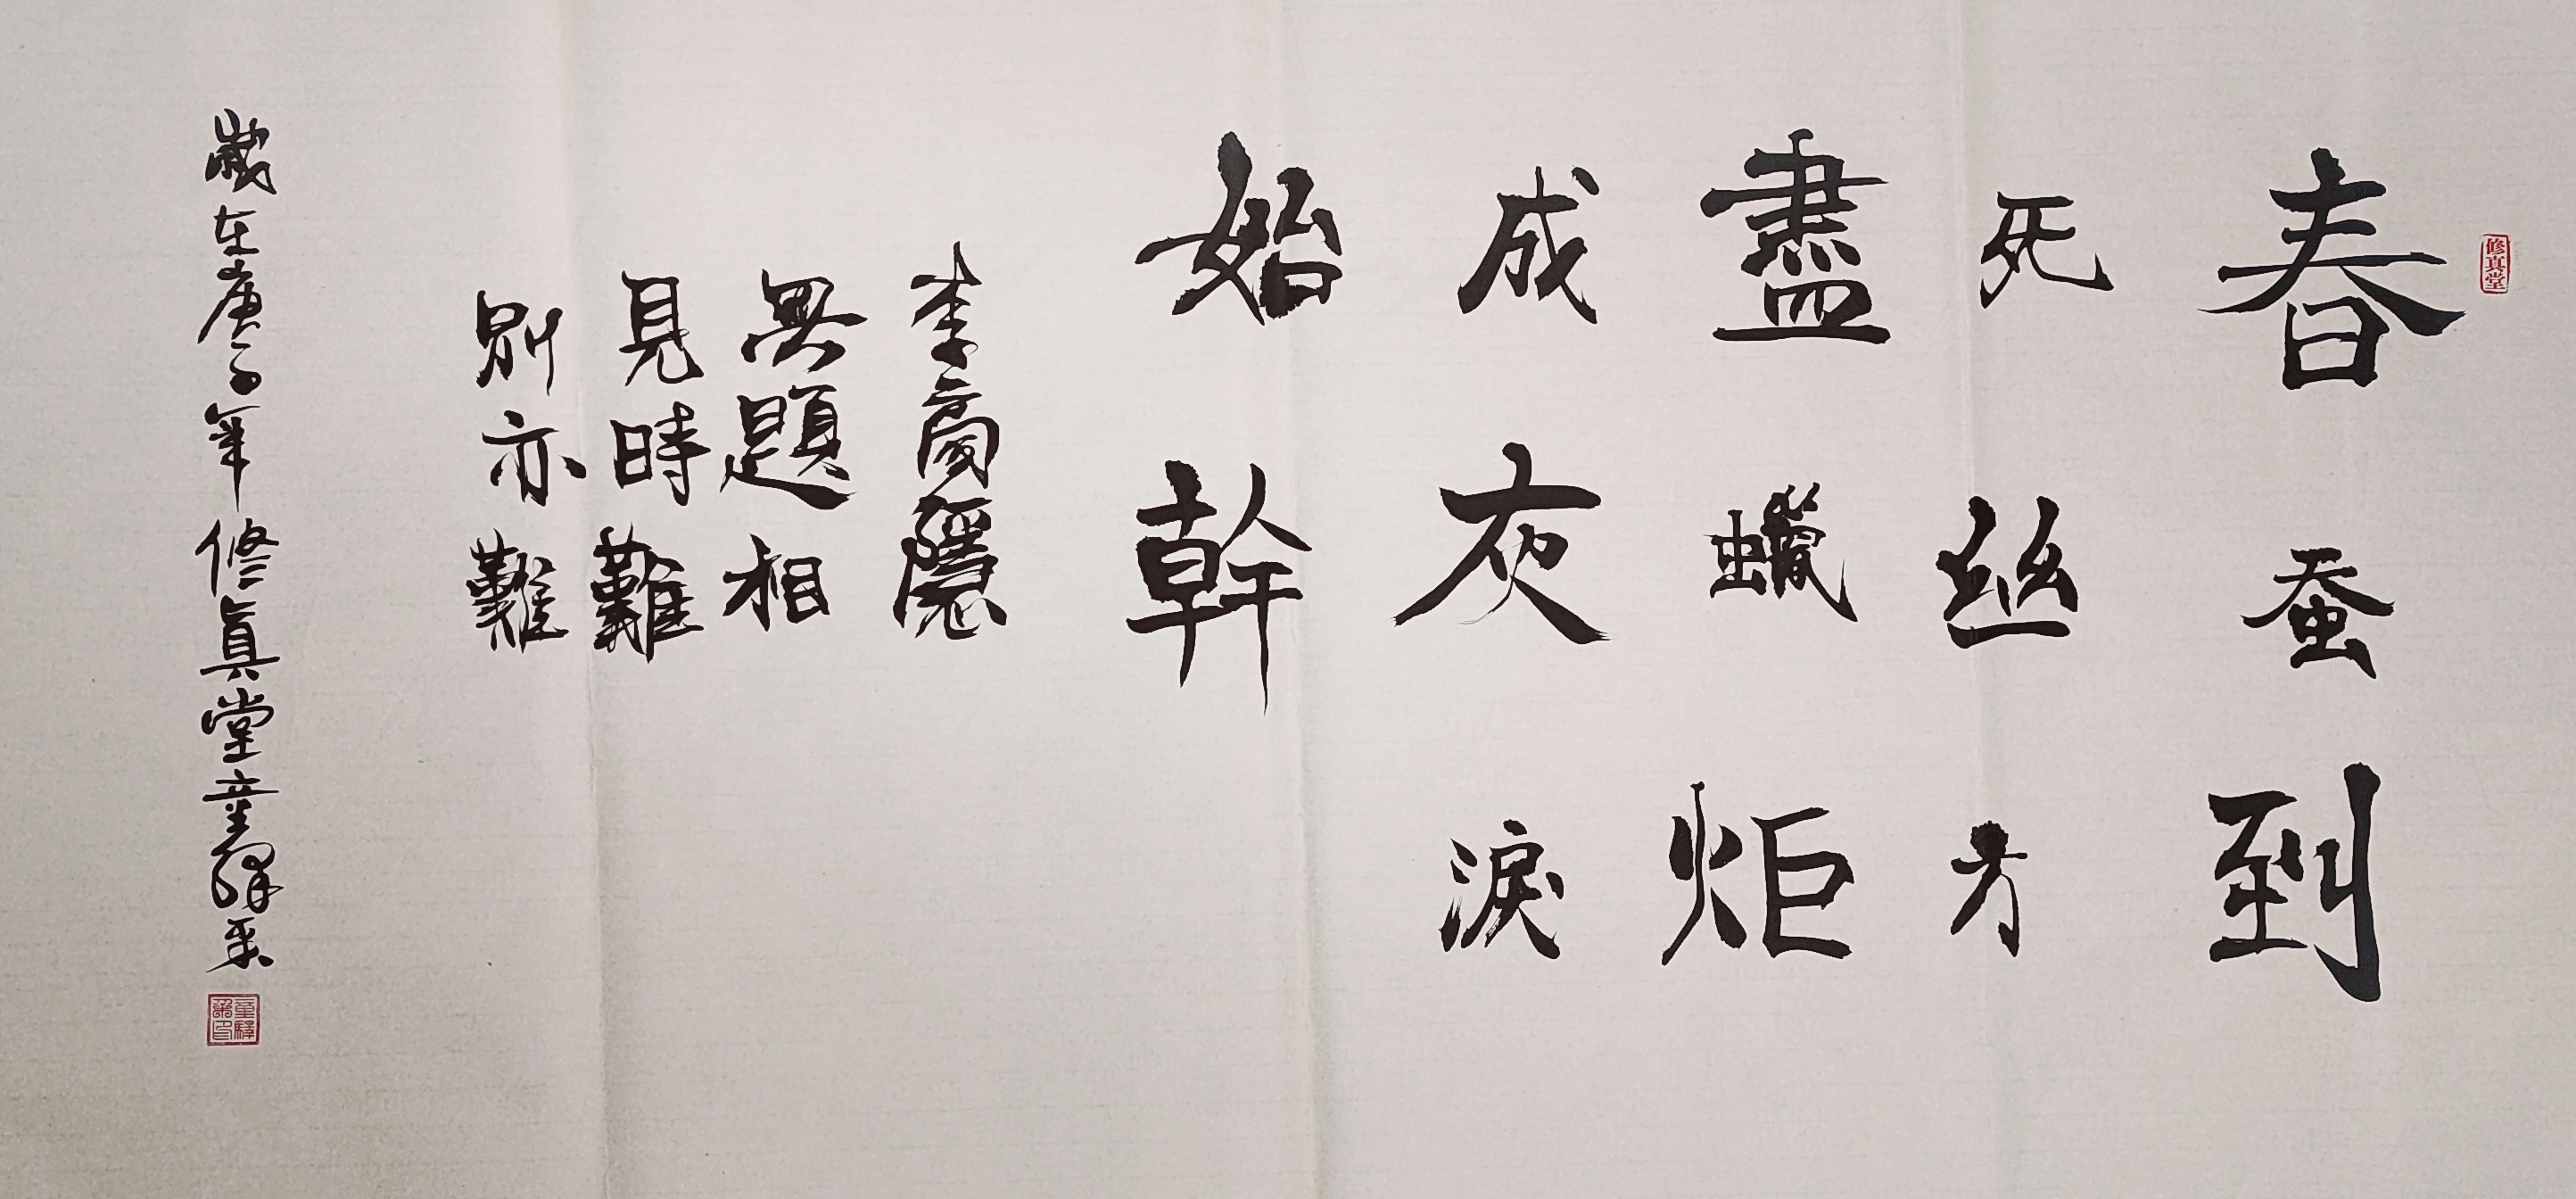 修真堂
春蚕到
死丝方
盡蠟炬
成灰淚
始幹
李商隱
無題相
見時難
別亦難
歲在庚子年修真堂童驛采